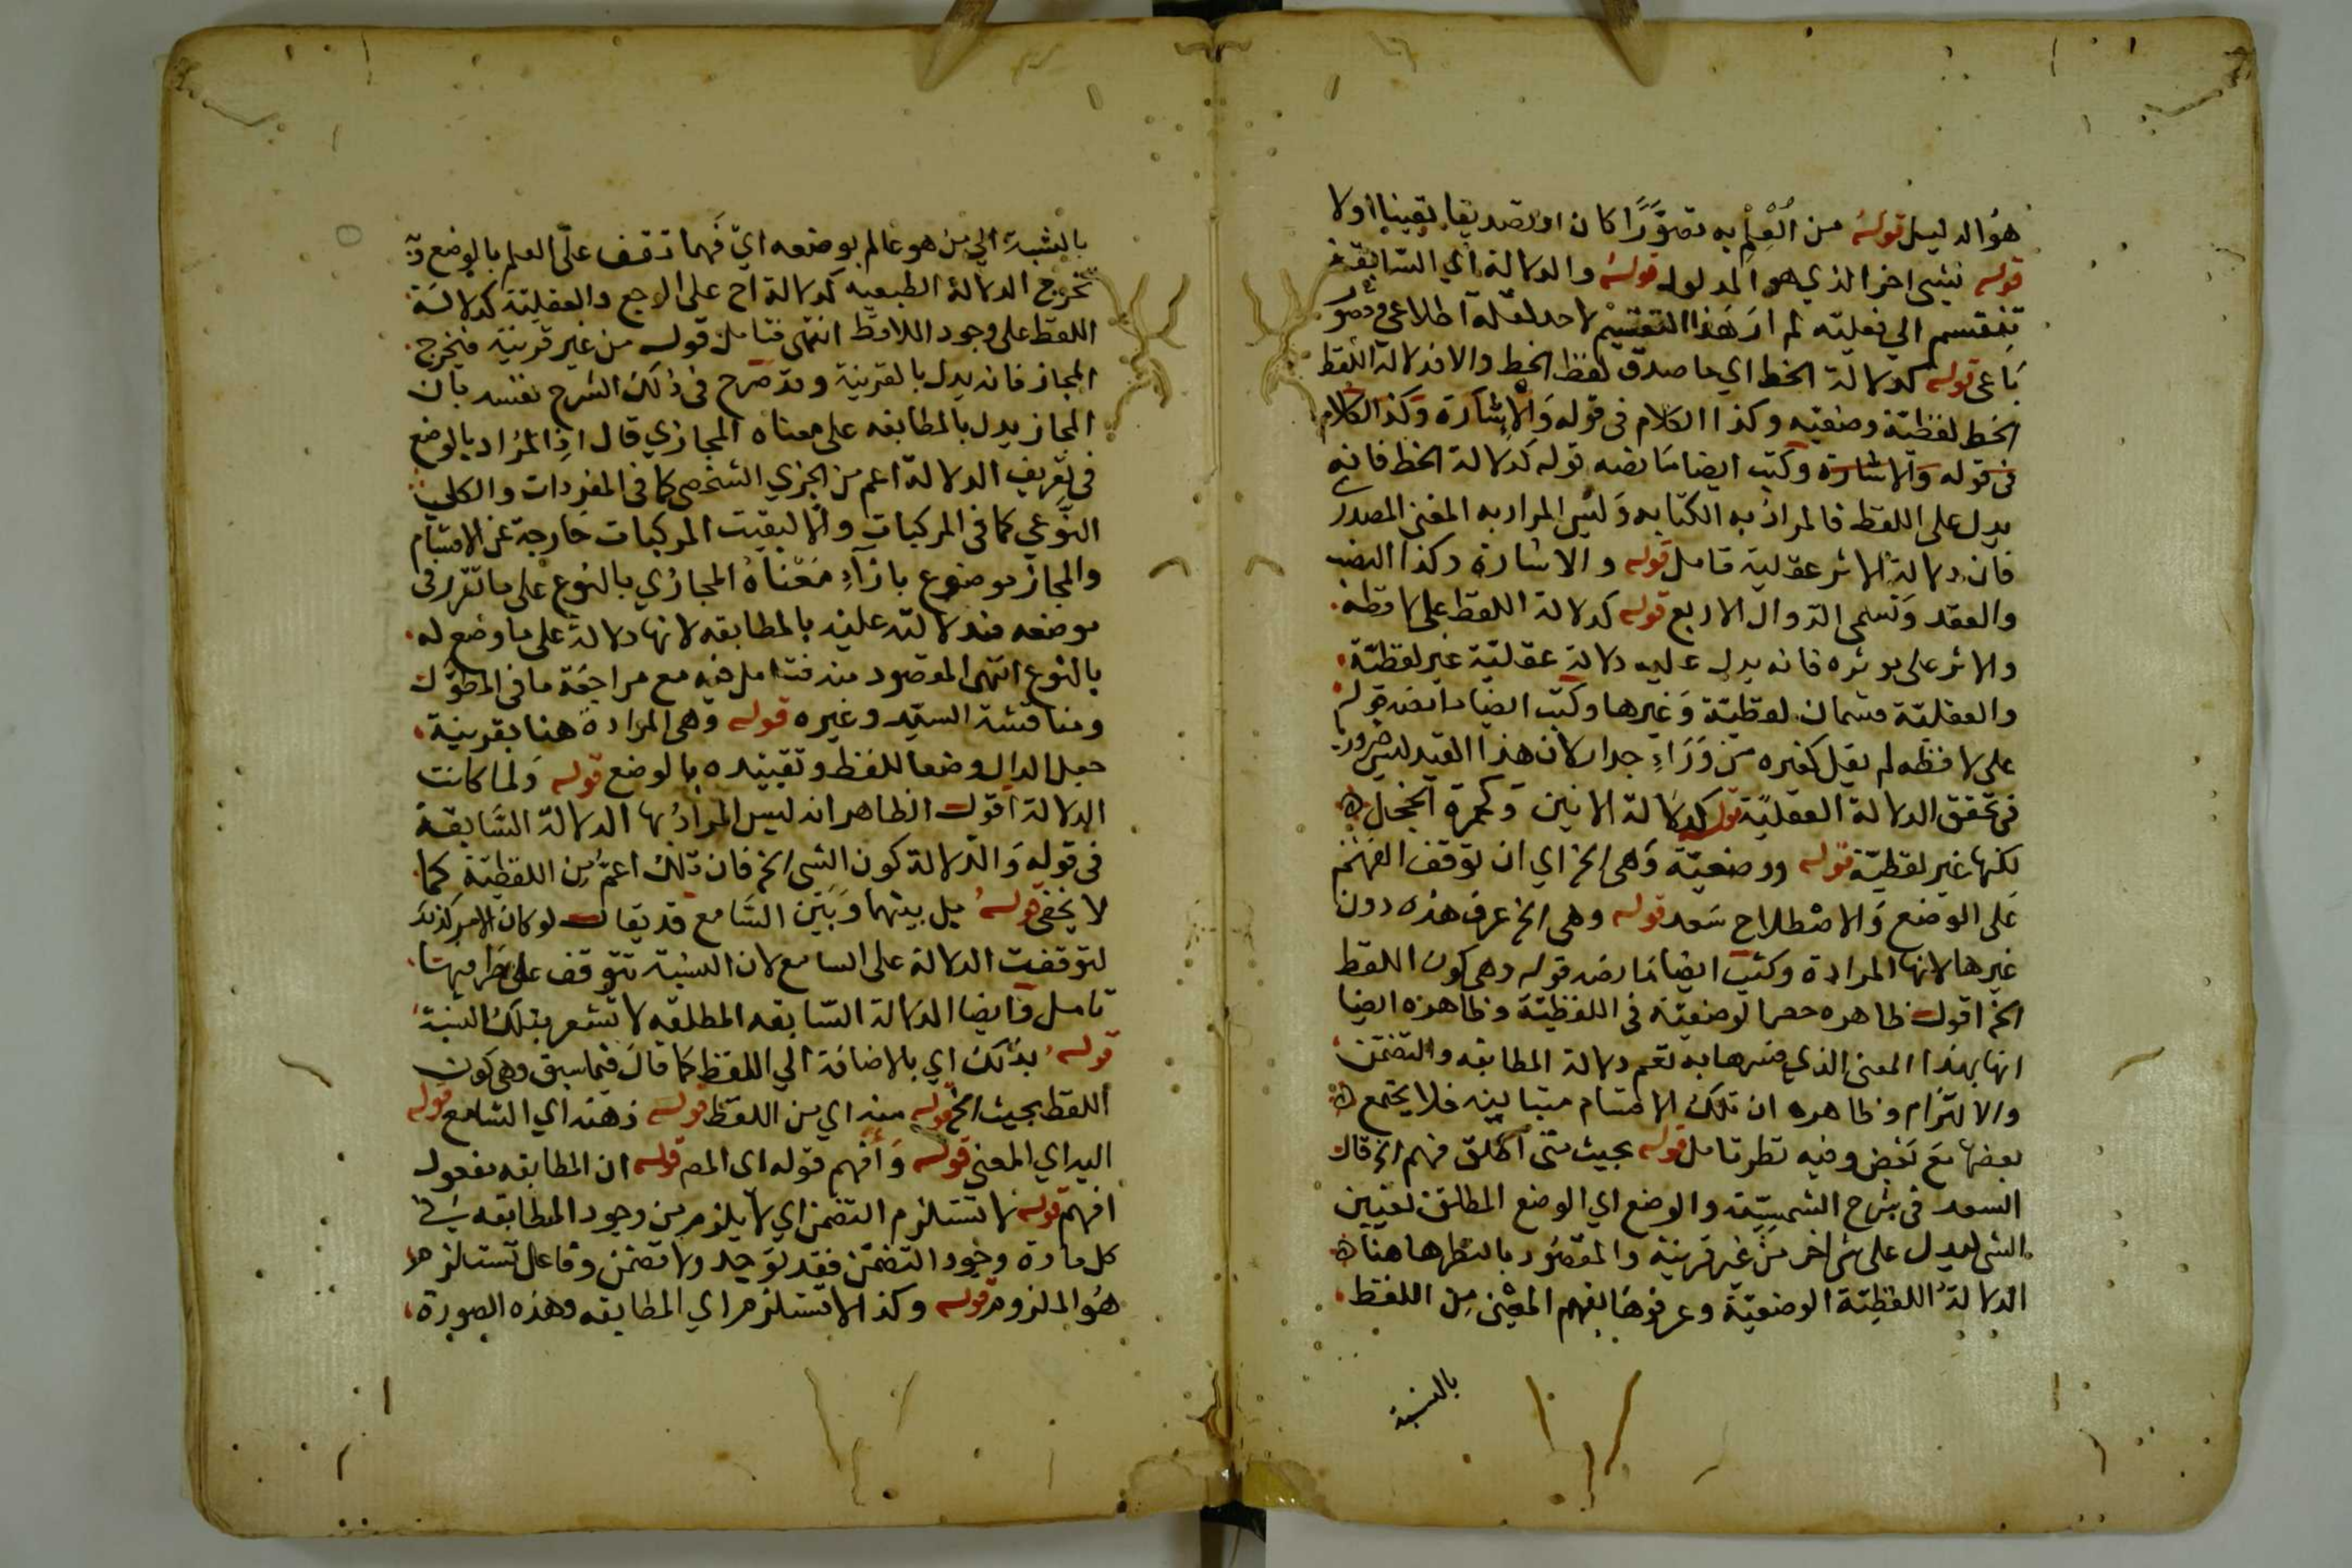 هو الدليل قوله من العلم به تصوَّرًا كان او تصديقا يقينيا اولا
قوله لشيء اخر الذي هو المدلول قوله والدلالة اي السابقة
تنقسم الي فعليه لم ار هذا التقسيم لاحد لقلة اطلاعي وقصور
باعي قوله كدلالة الخط اي ما صدق لفظ الخط والا فدلالة اللفظ
الخط لفظية وضعيه وكذا الكلام في قوله والاشارة وكذا الكلام
في قوله والاشارة وكتب ايضا ما نصه قوله كدلالة الخط فانه
يدل على اللفظ فالمراد به الكتابه وليس المراد به المعنى المصدر
فان دلالة الاثر عقلية تامل قوله والاشارة وكذا النصب
والعقد وتسمى الدوال الاربع قوله كدلالة اللفظ على لافظه
والاثر على موثره فانه يدل عليه دلالة عقلية غير لفظية
والعقلية قسمان لفظية وغيرها وكتب ايضا ما نصه قوله
على لافظه لم يقل كغيره من وراء جدار لان هذا القيد ليس ضروريا
في تحقق الدلالة العقلية قوله كدلالة الانين وكحمرة الخجل
لكنها غير لفظية قوله ووضعية وهي الخ اي ان توقف الفهم
على الوضع والاصطلاح سعد قوله وهي الخ عرف هذه دون
غيرها لانها المرادة وكتب ايضا ما نصه قوله وهي كون اللفظ
الخ اقول ظاهره حصر الوضعية في اللفظية وظاهره ايضا
انها بهذا المعنى الذي فسرها به تعم دلالة المطابقه والتضمن
والالتزام وظاهره ان تلك الاقسام متباينه فلا يجتمع
بعضها مع بعض وفيه نظر تامل قوله بحيث متى اطلق فهم الخ قال
السعد في شرح الشمسية والوضع اي الوضع المطلق تعيين
الشي ليدل على شي اخر من غير قرينة والمقصود بالنظر هاهنا
الدلالة اللفظية الوضعية وعرفوها بفهم المعنى من اللفظ
بالنسبة
بالنسبة الي من هو عالم بوضعه اي فهما توقف على العلم بالوضع
تخرج الدلالة الطبيعيه كدلالة اح على الوجع والعقلية كدلالة
اللفظ على وجود اللافظ انتهى فتامل قوله من غير قرينة فيخرج
المجاز فانه يدل بالقرينة وقد صرح في ذلك الشرح نفسه بان
المجاز يدل بالمطابقه على معناه المجازي قال اذ المراد بالوضع
في تعريف الدلالة اعم من الجزي الشخصي كما في المفردات والكلي
النوعي كما في المركبات والا لبقيت المركبات خارجة عن الاقسام
والمجاز موضوع بازاء معناه المجازي بالنوع على ما تقرر في
موضعه فدلالته عليه بالمطابقه لانها دلالة على ما وضع له
بالنوع انتهى المقصود منه فتامل فيه مع مراجعة ما في المطول
ومناقشة السيد وغيره قوله وهي المرادة هنا بقرينة
جعل الدال وضعا للفظ وتقييده بالوضع قوله ولما كانت
الدلالة اقول الظاهر انه ليس المراد بها الدلالة السابقة
في قوله والدلالة كون الشي الخ فان تلك اعم من اللفظية كما
لا يخفى قوله بل بينهما وبين السامع قد يقال لو كان الامر كذلك
لتوقفت الدلالة على السامع لان النسبة تتوقف على طرفيها
تامل وايضا الدلالة السابقه المطلقه لا تشعر بتلك النسبة
قوله بذلك اي بالاضافة الي اللفظ كما قال فيما سبق وهي كون
اللفظ بحيث الخ قوله منه اي من اللفظ قوله ذهنه اي السامع قوله
اليه اي المعنى قوله وأفهم قوله اي المص قوله ان المطابقه مفعول
افهم قوله لا تستلزم التضمن اي لا يلزم من وجود المطابقه في
كل مادة وجود التضمن فقد توجد ولا تضمن وفاعل تستلزم
هو الملزوم قوله وكذا لا تستلزم اي المطابقه وهذه الصورة